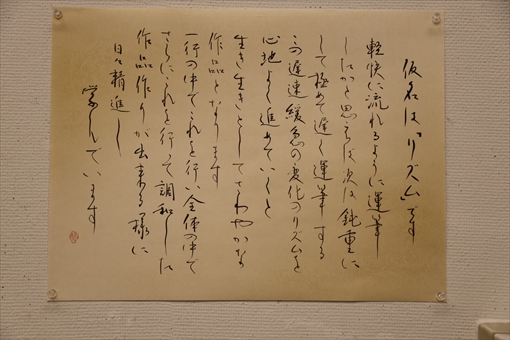 仮名は「リズム」です
軽快に流れるように運筆
したかと思えば次は鈍重に
して極めて遅く運筆する
この遅速緩急の変化のリズムを
心地よく進めていくと
生き生きとしてさわやかな
作品となります
一行の中でこれを行い全体の中で
さらにこれを行って調和した
作品作りが出来る様に
日々精進し
学んでいます